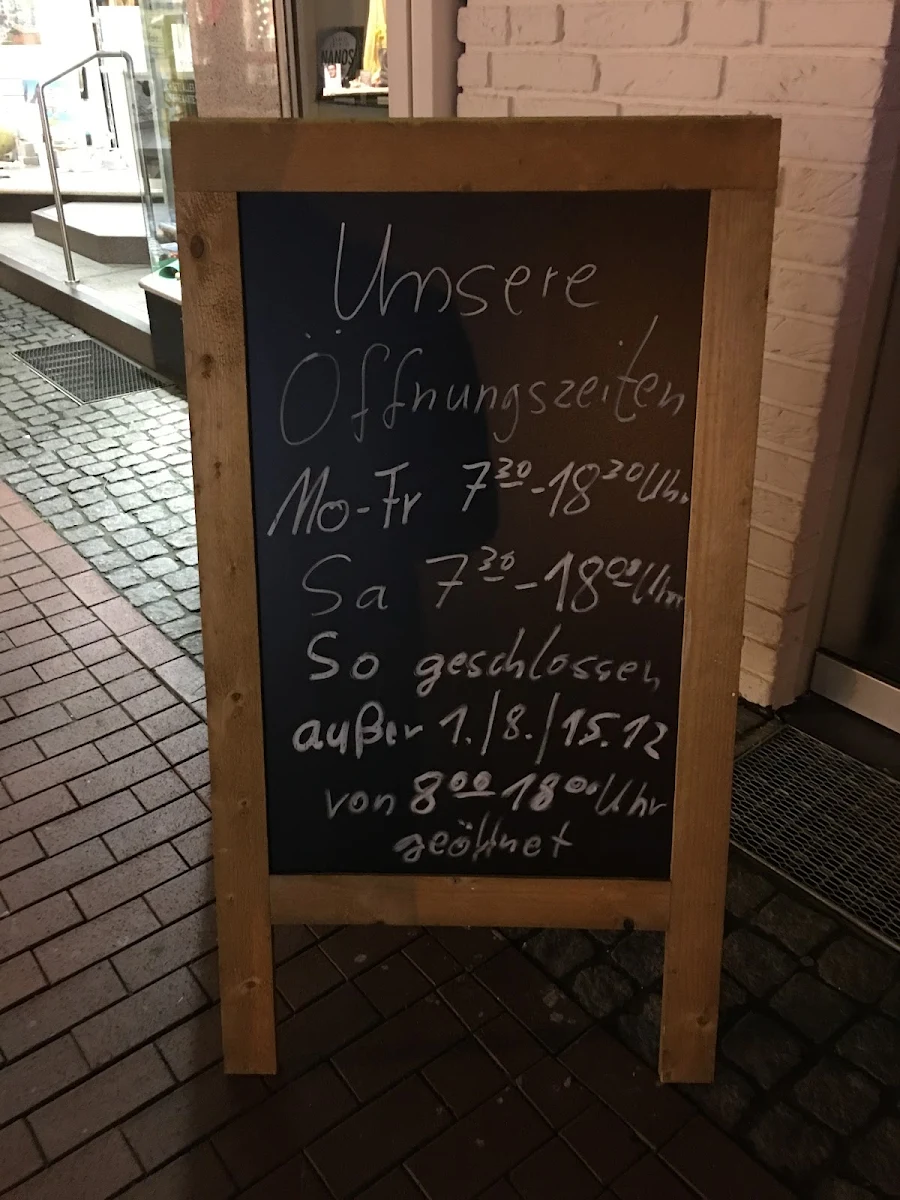 Unsere
Öffnungszeiten
Mo-Fr 7³⁰-18³⁰Uhr
Sa 7³⁰-18⁰⁰Uhr
So geschlossen
außer 1./8./15.12
von 8⁰⁰ 18⁰⁰Uhr
geöffnet